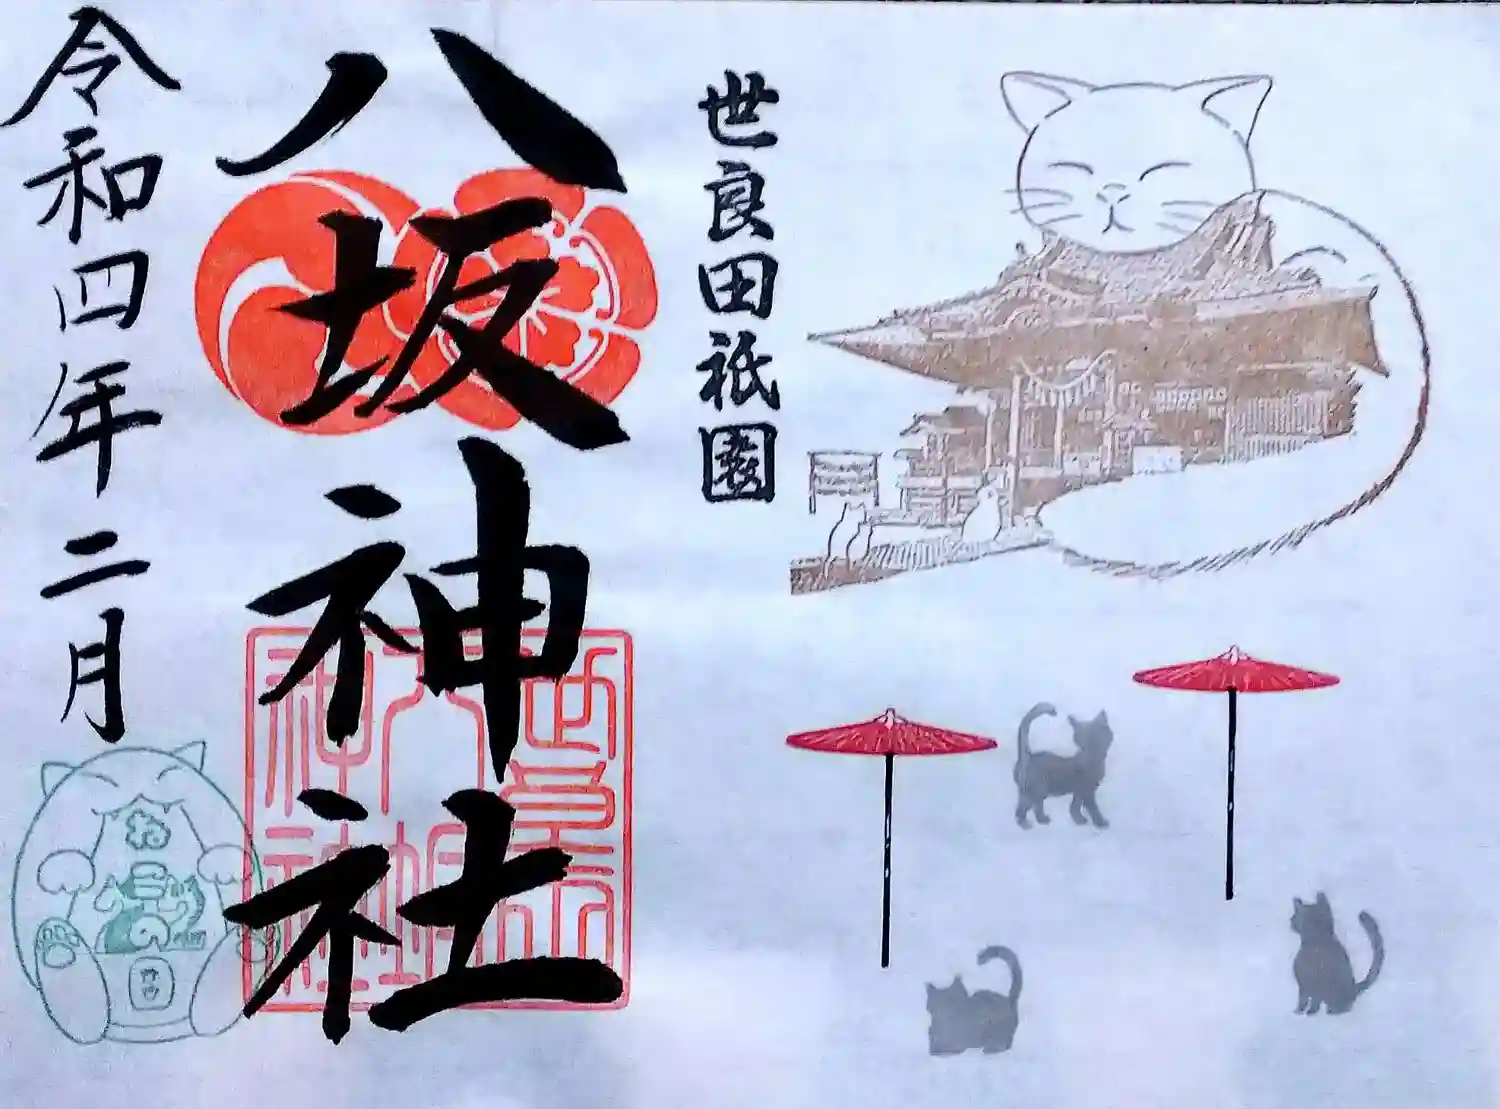 世良田祇園
八坂神社
令和四年二月